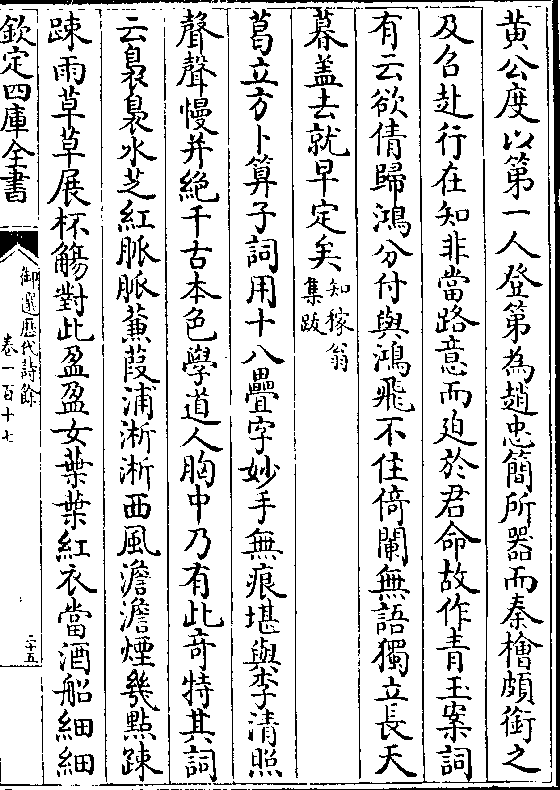 黄公度以第一人登第為趙忠簡所器而秦檜頗銜之
及召赴行在知非當路意而廹於君命故作青玉案詞
有云欲倩歸鴻分付與鴻飛不住倚闌無語獨立長天
暮盖去就早定矣知稼翁集跋
葛立方卜算子詞用十八疊字妙手無痕堪與李清照
聲聲慢并絶千古本色學道人胸中乃有此竒特其詞
云裊裊水芝紅脈脈蒹葭浦淅淅西風澹澹煙幾點踈
踈雨草草展杯觴對此盈盈女葉葉紅衣當酒船細細
欽定四庫全書
御選歷代詩餘
卷一百十七
二十五